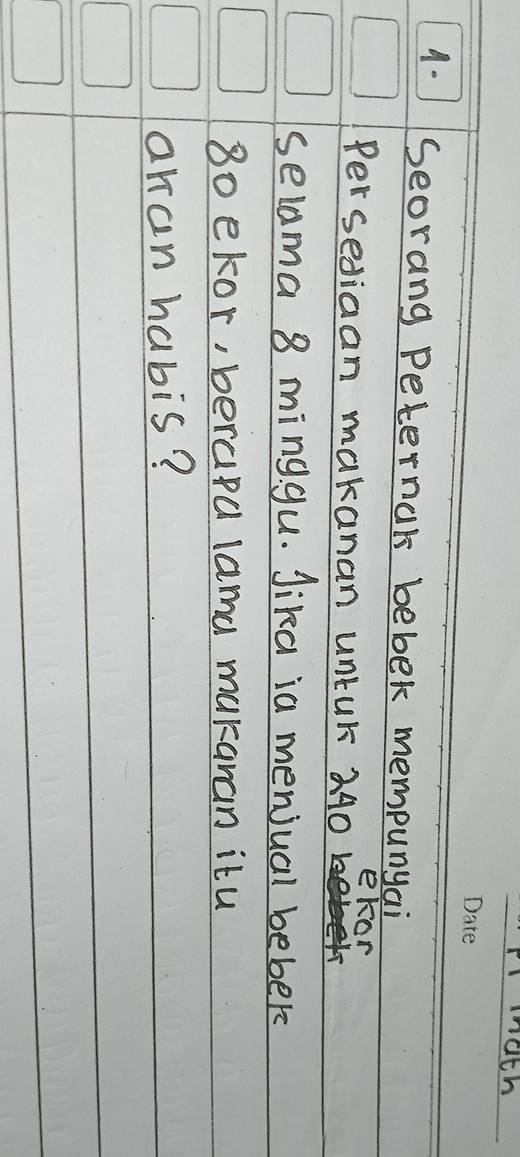 PR math
Date
1. Seorang Peternak bebek mempunyai
Persediaan makanan untuk 240 ekor
selama 8 minggu. Jika ia menjual bebek
80 ekor, berapa lama makanan itu
akan habis?